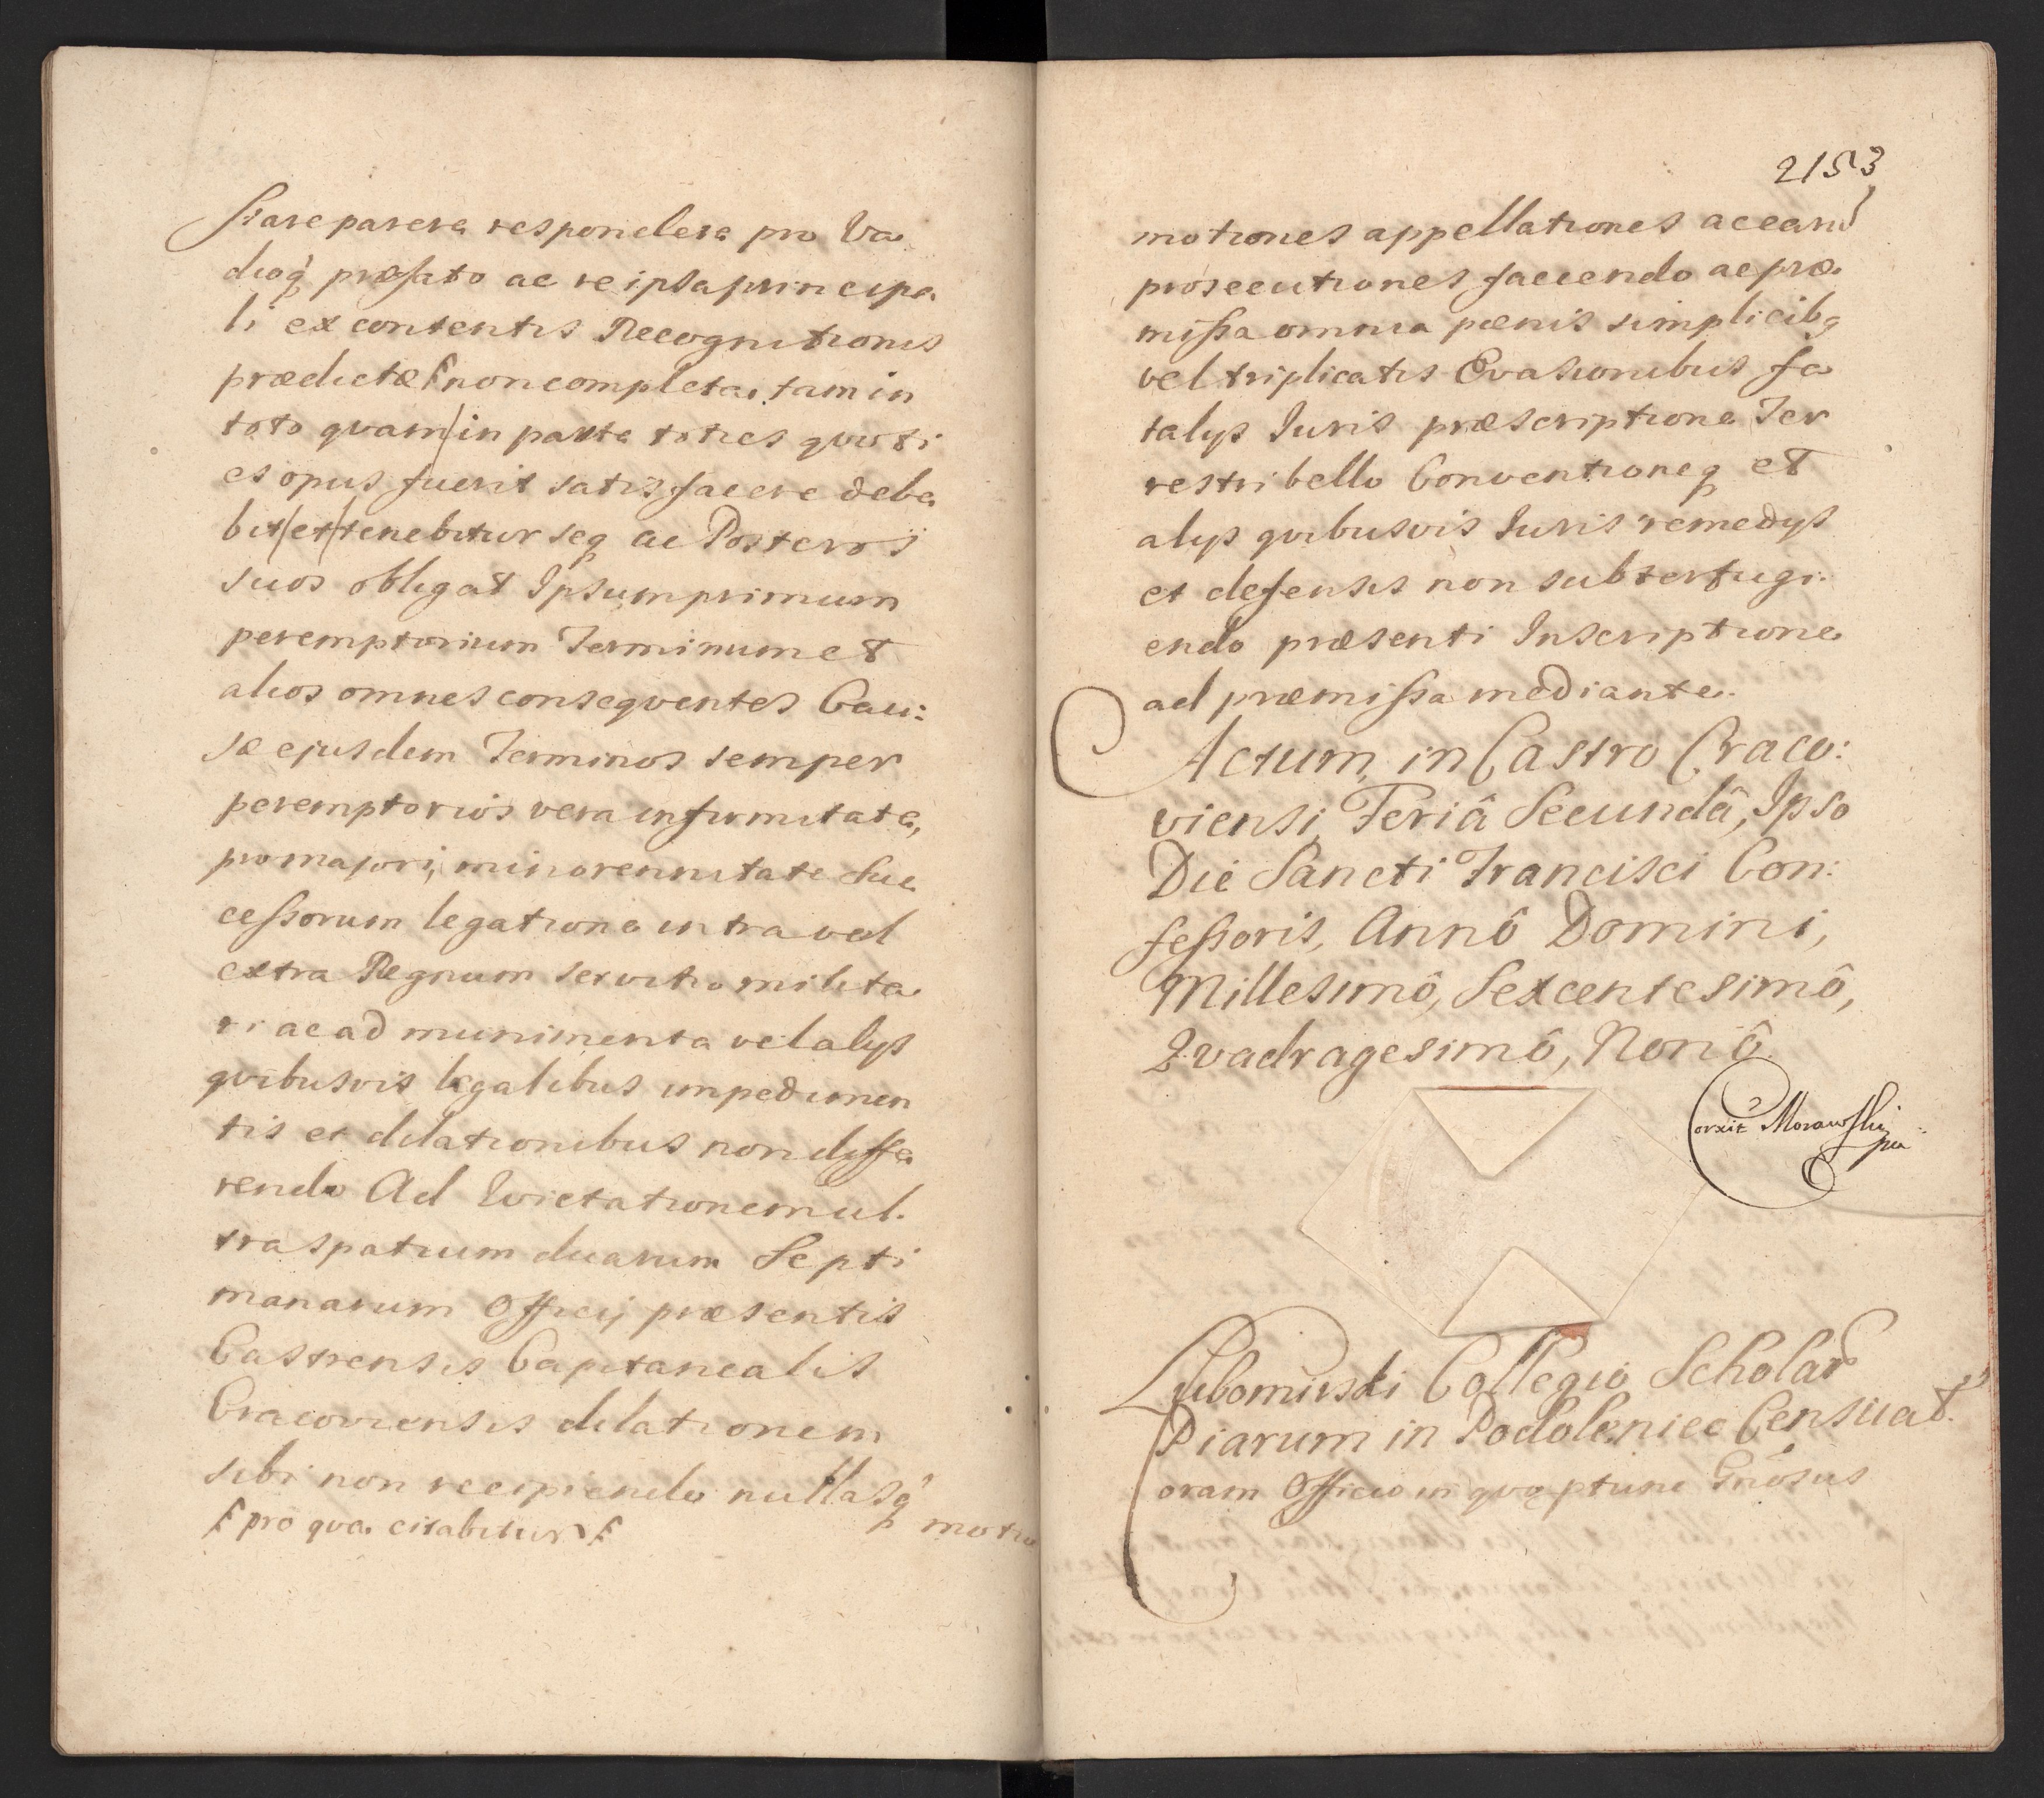 stare parere respondere pro Va
dioq præfato ac re ipsa principa
li ex contentis Recognitionis
prædictæ non completa, tam in
toto qvam in parte toties qvoti
es opus fuerit satisfacere debe
bit et tenebitur seq ac Posteros
suos obligat Ipsum primum
peremptorium Terminum et
alios omnes conseqventes Cau:
sæ ejusdem Terminos semper
peremptorios vera infirmitate,
pro majori, minorennitate Suc
cessorum legatione intra vel
extra Regnum servitio milita
ri ac ad munimenta vel alys
qvibusvis legalibus impedimen
tis et dilationibus non diffe
rendo Ad Evictationem ul
tra spatium duarum Septi
manarum Officij præsentis
Castrensis Capitanealis
Cracoviensis dilationem
sibi non recipiendo nullasq
pro qva citabitur
motio
2153
motiones appellationes ac earu
prosecutiones faciendo ac præ
missa omnia pænis simplicibq
vel triplicatis Evasionibus fa
talys Iuris præscriptione Ter
restri bello Conventioneq et
alys qvibusvis Iuris remedys
et defensis non subterfugi
endo præsenti Inscriptione
ad præmissa mediante.
Actum in Castro Craco:
viensi, Feriâ Secundâ, Ipso
Die Sancti Francisci Con:
fessoris, Annô Domini,
Millesimô, Sexcentesimô,
Qvadragesimô, Nonô.
Corxit Morawski
Lubomirski Collegio Scholar
Piarum in Podoleniec Censuat.
Coram Officio in qvo ptuni Gnosus